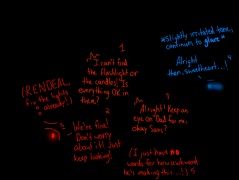 1
I can't find
the flashlight
or the candles! Is
everything OK in
there?
(RENDEAL,
fix the lights
already!)
2
We're fine!
Don't worry
about it! Just
keep looking!
3
Alright! Keep an
eye on Dad for me,
okay Sam?
*Slightly irritated tone,
continues to glare*
Alright
then, sweetheart...! 4
(I just have no
words for how awkward
he's making this...!) 5